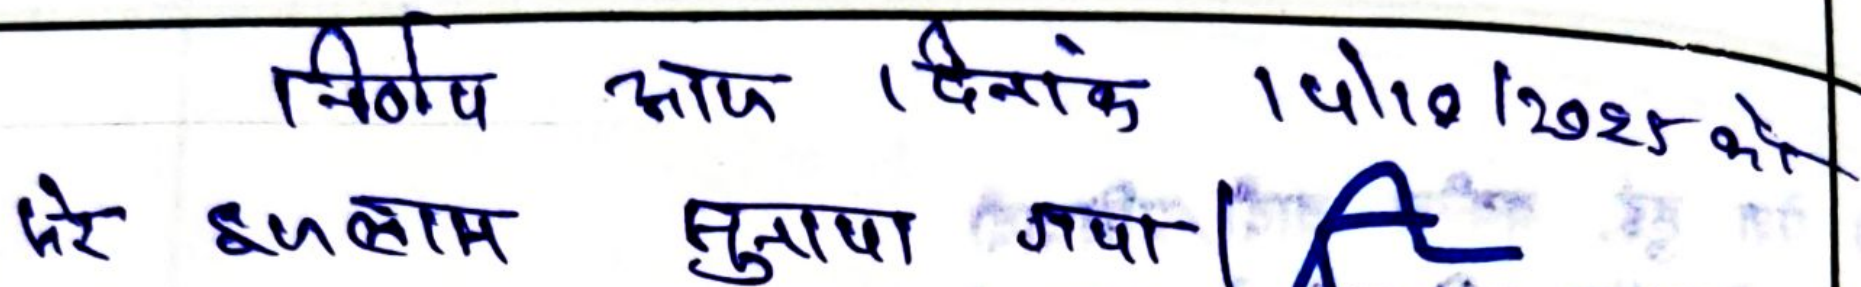 निर्णय आज दिनांक 14/10/2025 को
सरे इजलास सुनाया गया।